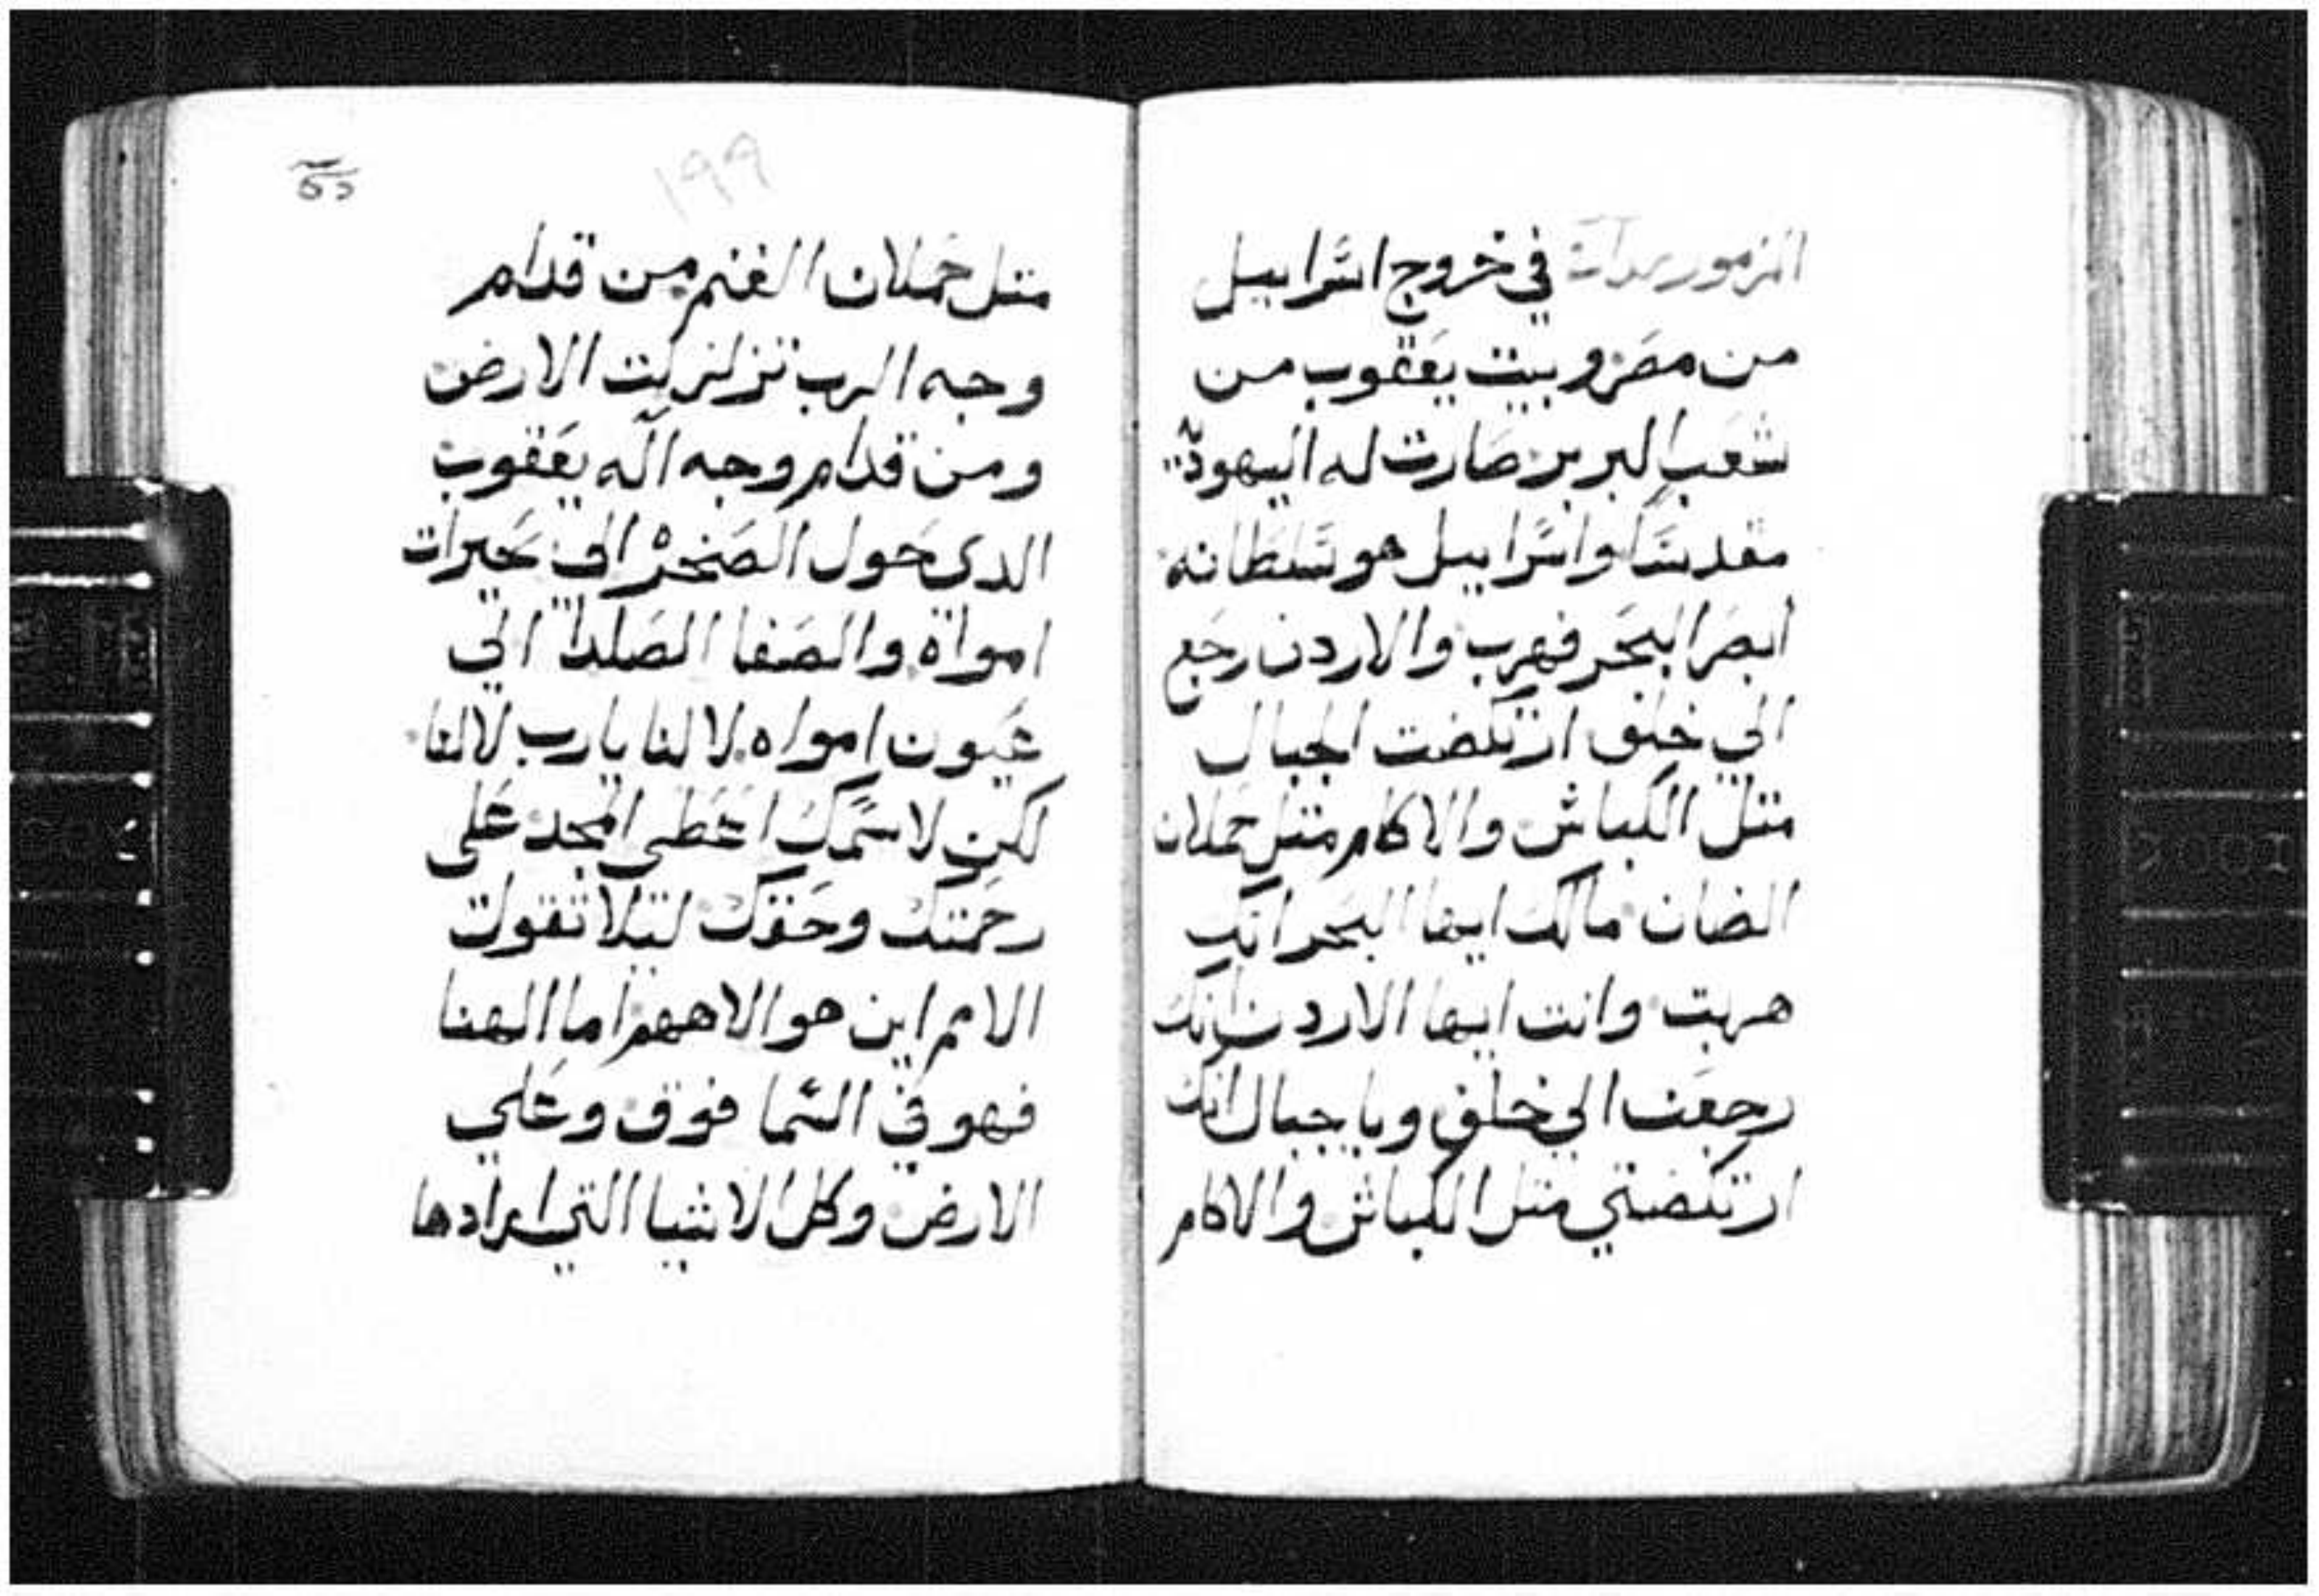 المزمور في خروج اسرابيل
من مصر وبيت يعقوب من
شعب البربر صارت له اليهوديّه
مقدسًا واسرابيل هو سلطانه
ابصر البحر فهرب والاردن رجع
الي خلف ارتكضت الجبال
متل الكباش والاكام متل حملان
الضان مالك ايها البحر انك
هربت وانت ايها الاردن انك
رجعت الي خلف ويا جبال انك
ارتكضتي متل الكباش والاكام
١٩٩
متل حملان الغنم من قدام
وجه الرب تزلزلت الارض
ومن قدام وجه اله يعقوب
الدى حول الصخره الي بحيرات
امواه والصفا الصلدا الي
عيون امواه لا لنا يارب لا لنا
لكن لاسمك اعطى المجد على
رحمتك وحقك ليلا تقول
الامم اين هو الاههم اما الهنا
فهو في السما فوق وعلي
الارض وكل الاشيا التي ارادها